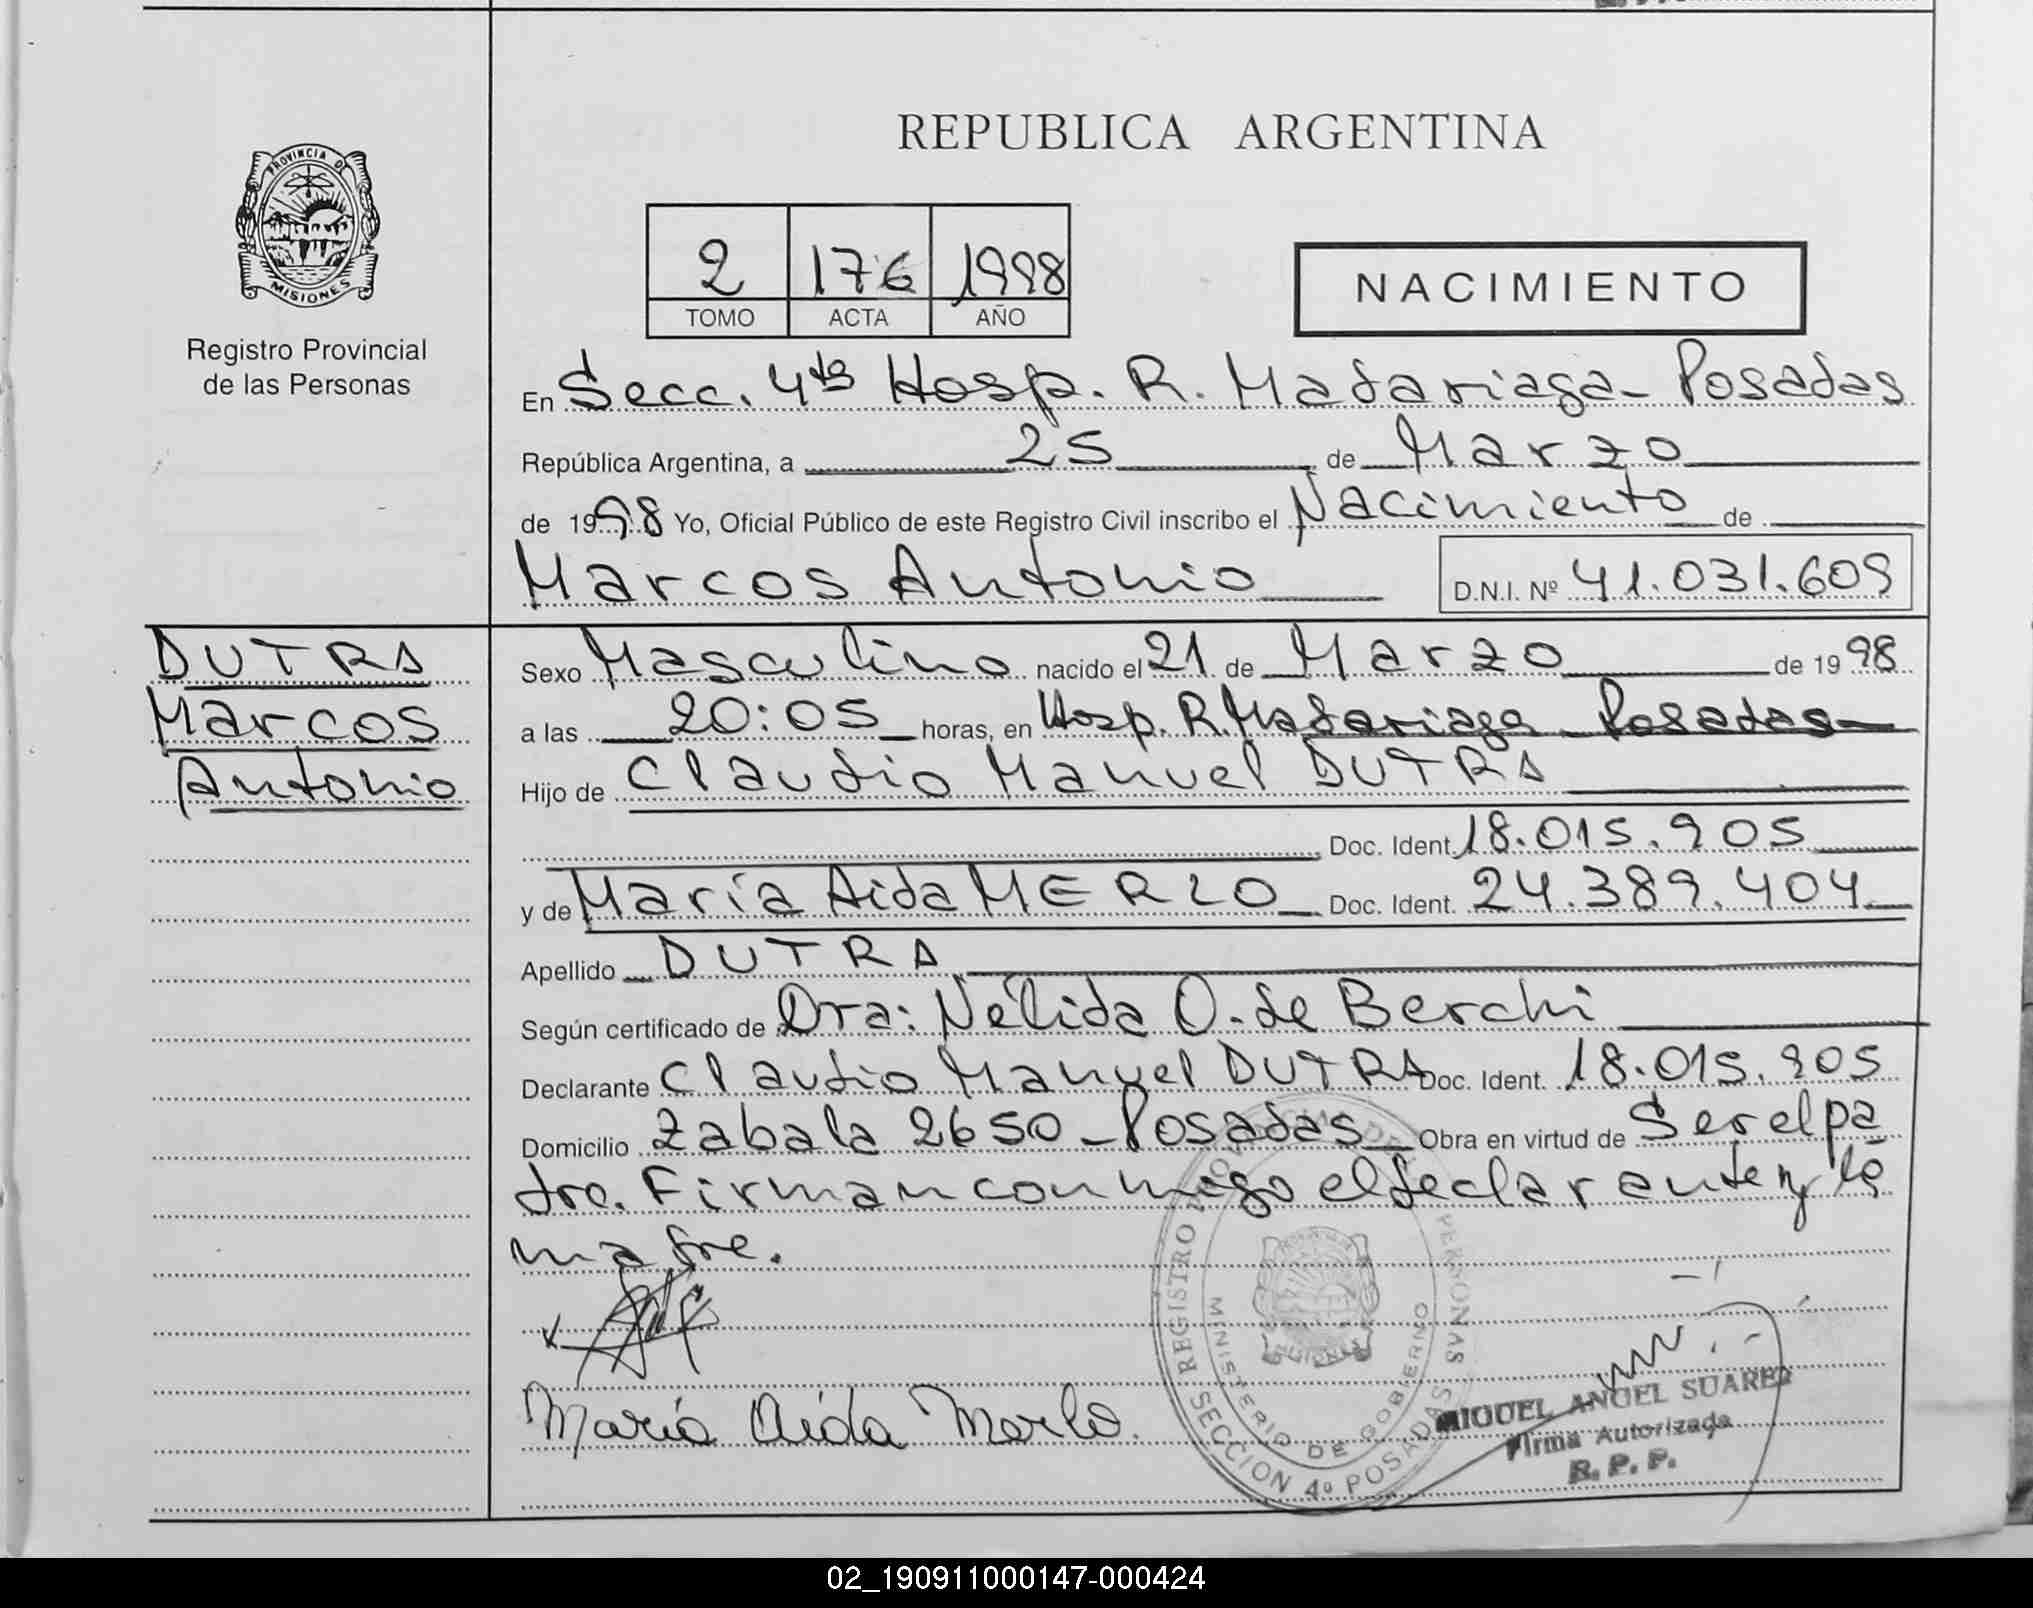 REPUBLICA ARGENTINA
PROVINCIA DE
MISIONES
Registro Provincial
de las Personas
2 176 1998
TOMO ACTA AÑO
NACIMIENTO
En Secc. 4ta Hosp. R. Madariaga - Posadas
República Argentina, a 25 de Marzo
de 1998 Yo, Oficial Público de este Registro Civil inscribo el Nacimiento de
Marcos Antonio D.N.I. Nº 41.031.609
DUTRA
Marcos
Antonio
Sexo Masculino nacido el 21 de Marzo de 1998
a las 20:05 horas, en Hosp. R. Madariaga Posadas
Hijo de Claudio Manuel DUTRA
Doc. Ident. 18.015.905
y de María Aida MERLO Doc. Ident. 24.389.404
Apellido DUTRA
Según certificado de Dra: Nélida O. de Berchi
Declarante Claudio Manuel DUTRA Doc. Ident. 18.015.905
Domicilio Zabala 2650 - Posadas Obra en virtud de Ser el pa
dre. Firman conmigo el declarante y la
madre.
María Aida Merlo.
REGISTRO PROVINCIAL DE LAS PERSONAS
MINISTERIO DE GOBIERNO
SECCION 4º POSADAS
MIGUEL ANGEL SUAREZ
Firma Autorizada
R. P. P.
02_190911000147-000424